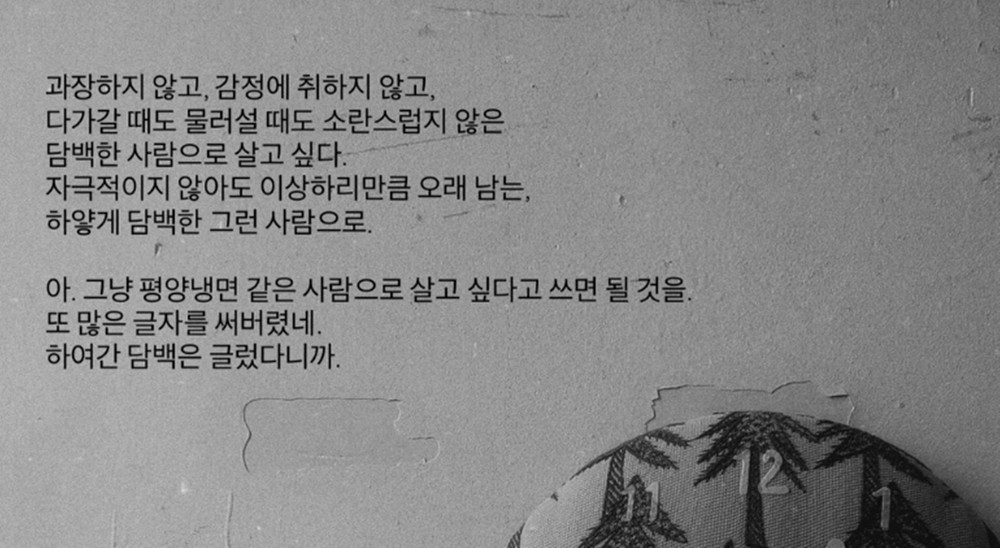 과장하지 않고, 감정에 취하지 않고,
다가갈 때도 물러설 때도 소란스럽지 않은
담백한 사람으로 살고 싶다.
자극적이지 않아도 이상하리만큼 오래 남는,
하얗게 담백한 그런 사람으로.
아. 그냥 평양냉면 같은 사람으로 살고 싶다고 쓰면 될 것을.
또 많은 글자를 써버렸네.
하여간 담백은 글렀다니까.
11 12 1